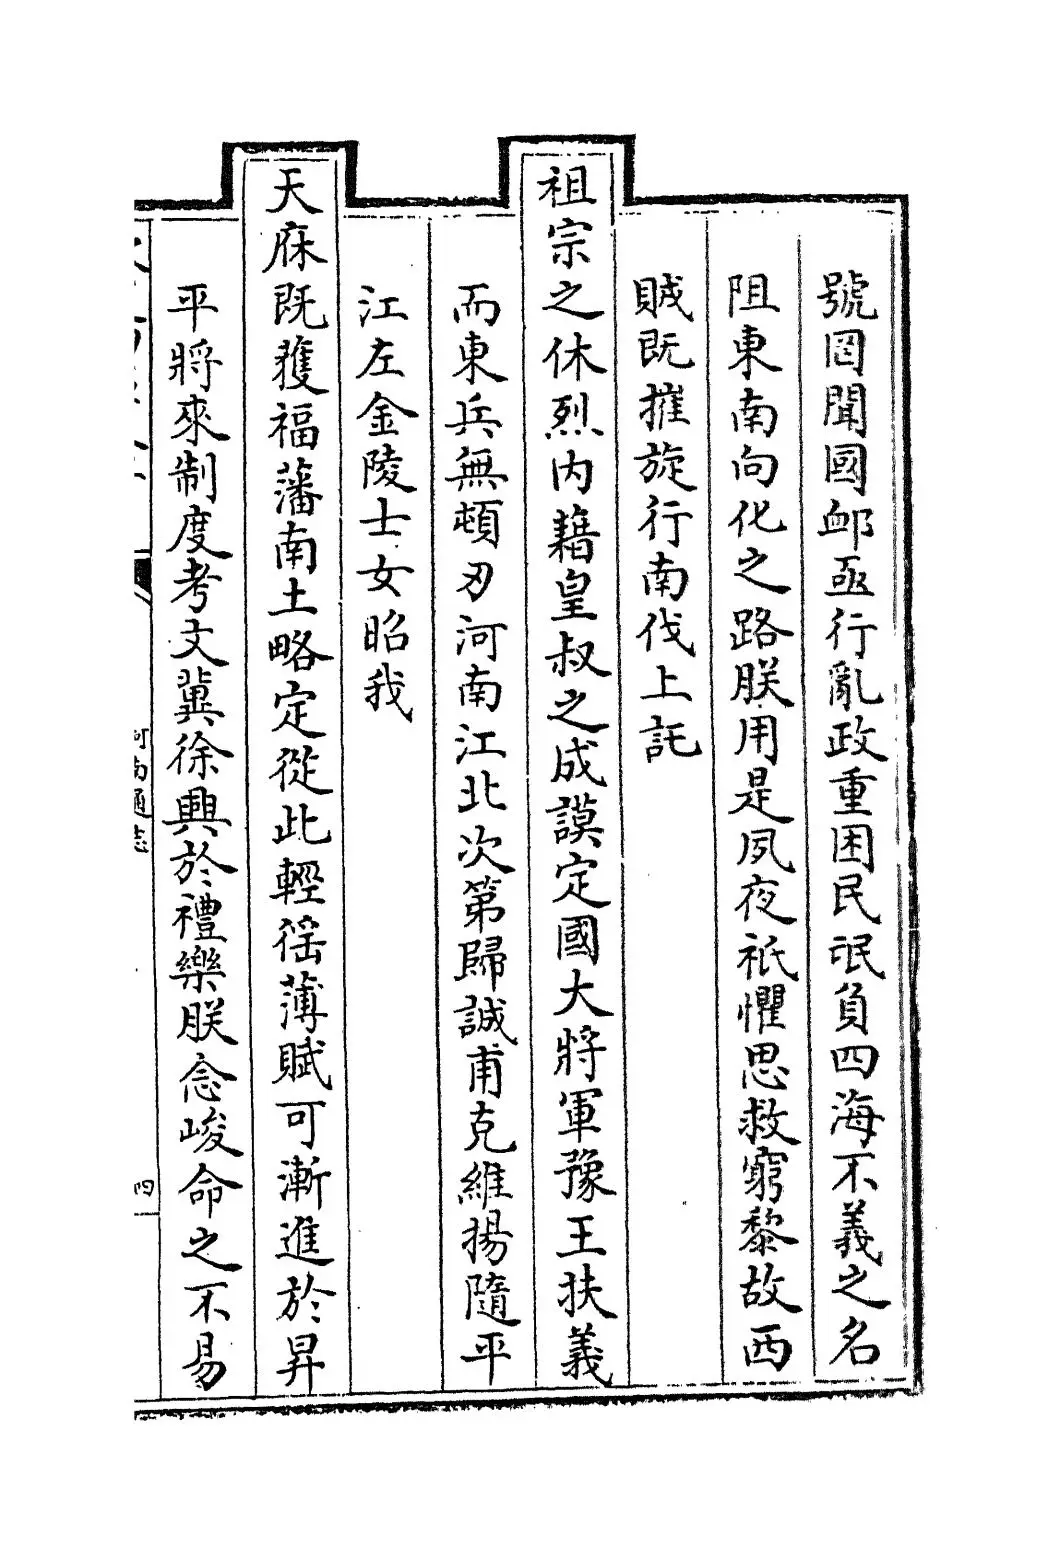 號罔聞國䘏亟行亂政重困民氓負四海不義之名
阻東南向化之路朕用是夙夜祇懼思救窮黎故西
賊既摧旋行南伐上託
祖宗之休烈内藉皇叔之成謨定國大將軍豫王扶義
而東兵無頓刃河南江北次第歸誠甫克維揚隨平
江左金陵士女昭我
天庥既獲福藩南土略定從此輕徭薄賦可漸進於昇
平將來制度考文冀徐興於禮樂朕念峻命之不易
河南通志
四